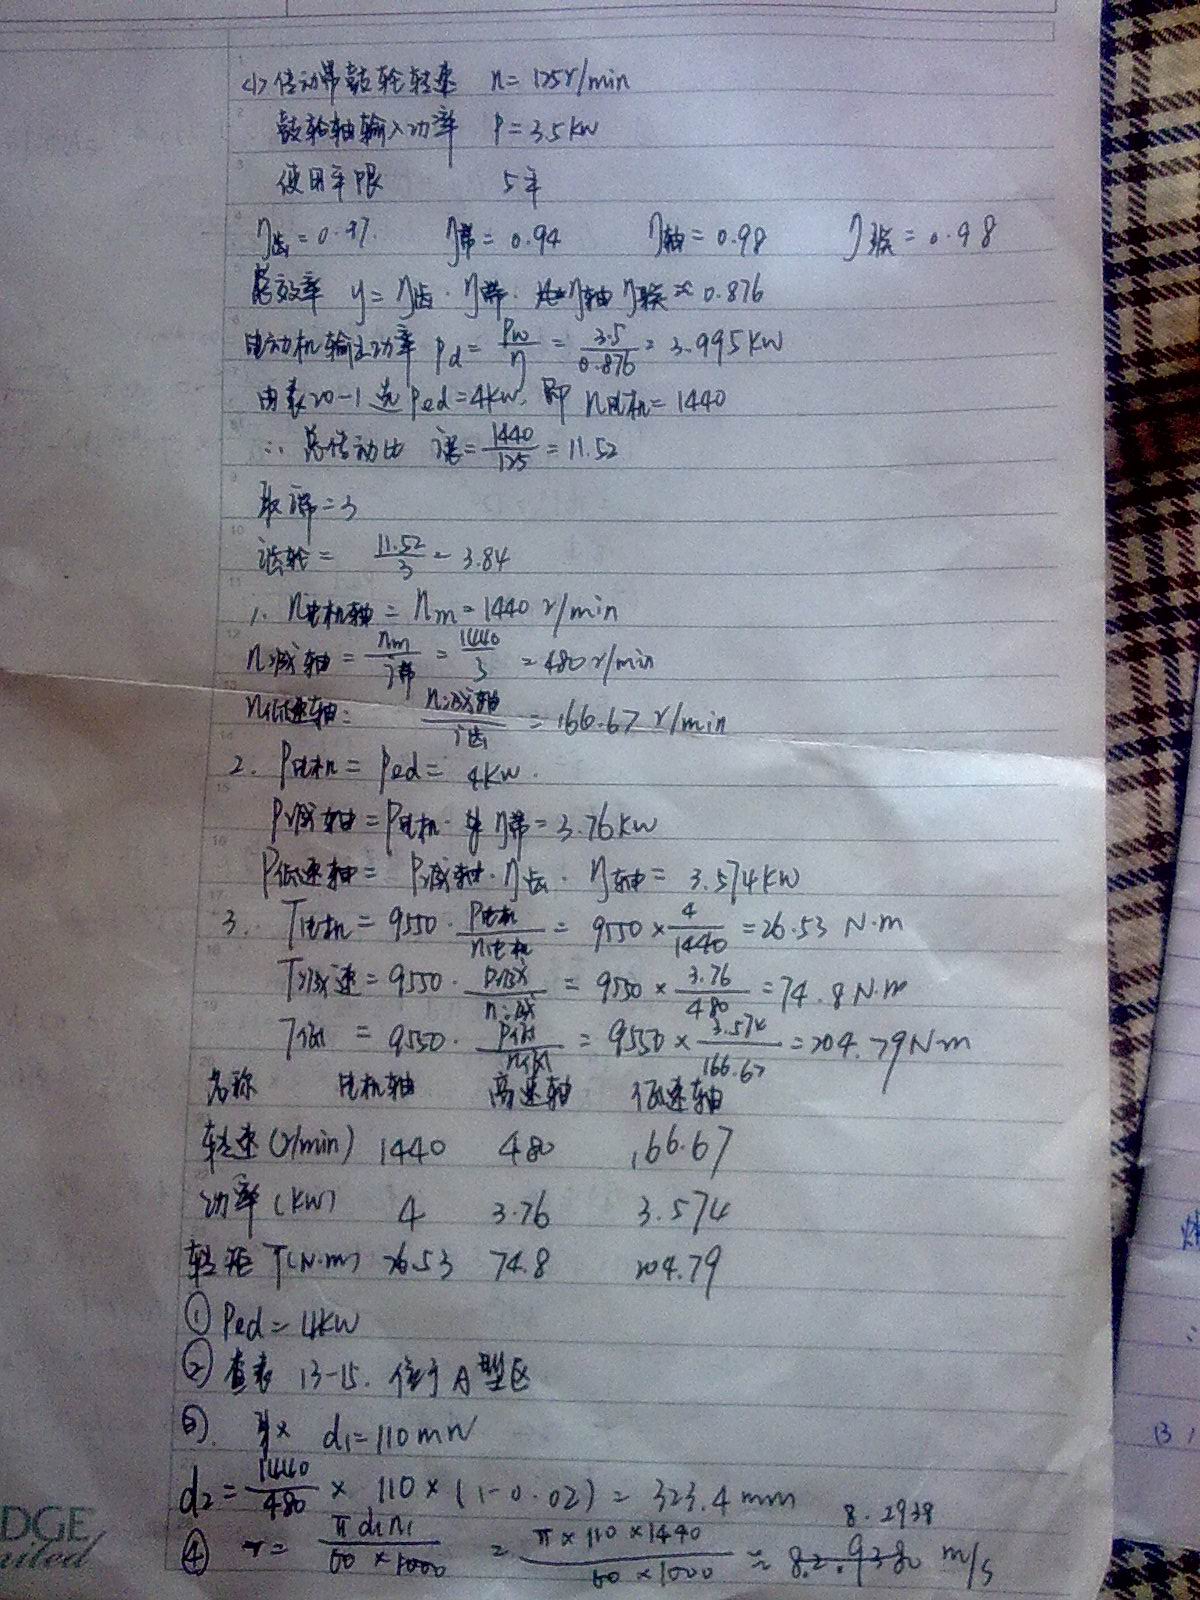 <1> 传动带鼓轮转速 n=125r/min
鼓轮轴输入功率 P=3.5KW
使用年限 5年
η齿=0.97. η带=0.94 η轴=0.98 η联=0.98
总效率 y=η齿·η带·η轴η联≈0.876
电动机输出功率 Pd=Pw/η=3.5/0.876=3.995KW
由表20-1选Ped=4KW, 即 n电机=1440
∴总传动比 i总=1440/125=11.52
取i带=3
i齿轮= 11.52/3=3.84
1. n电机轴=nm=1440r/min
n减轴=nm/i带=1440/3=480r/min
n低速轴= n减轴/i齿=166.67r/min
2. P电机=Ped=4KW.
P减轴=P电机·η带=3.76KW
P低速轴= P减轴·η齿·η轴=3.574KW
3. T电机=9550·P电机/n电机=9550×4/1440=26.53 N·m
T减速=9550·P减/n减=9550×3.76/480=74.8N·m
T低=9550·P低/n低=9550×3.574/166.67=204.79N·m
名称 电机轴 高速轴 低速轴
转速(r/min) 1440 480 166.67
功率(KW) 4 3.76 3.574
转矩T(N·m) 26.53 74.8 204.79
① Ped=4KW
② 查表13-15. 位于A型区
③. d1=110mm
d2=1440/480×110×(1-0.02)=323.4mm
8.2938
④ v=πd1n1/60×1000=π×110×1440/60×1000≈ m/s
DGE